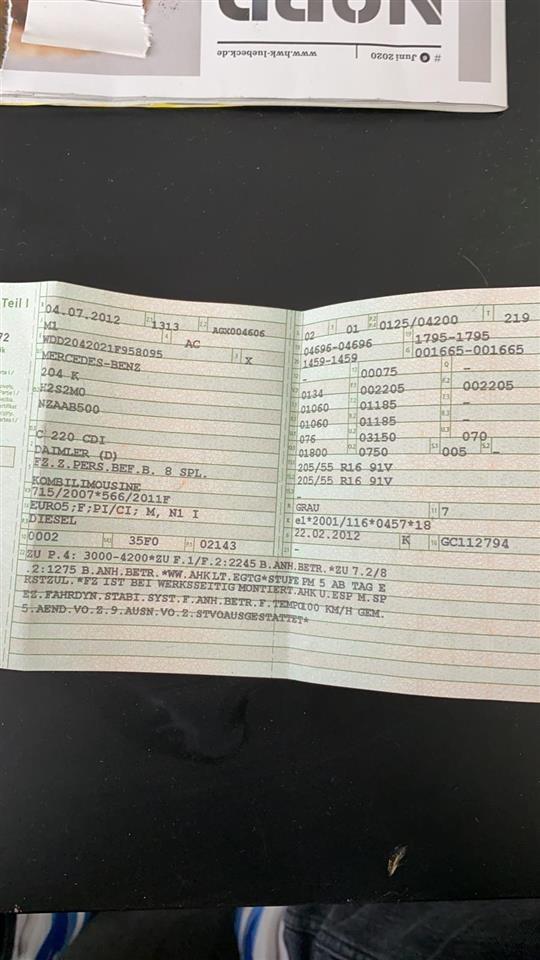 NORD
www.hwk-luebeck.de
# 6 Juni 2020
Teil I
72
04.07.2012 1313 AGX004606
M1 AC
WDD2042021F958095 X
MERCEDES-BENZ
204 K
H2S2M0
NZAAB500
C 220 CDI
DAIMLER (D)
FZ.Z.PERS.BEF.B. 8 SPL.
KOMBILIMOUSINE
715/2007*566/2011F
EURO5;F;PI/CI; M, N1 I
DIESEL
0002 35F0 02143
02 01 0125/04200 219
04696-04696 1795-1795
1459-1459 001665-001665
- 00075 -
0134 002205 002205
01060 01185 -
01060 01185 -
076 03150 070
01800 0750 005 -
205/55 R16 91V
205/55 R16 91V
-
GRAU 7
e1*2001/116*0457*18
22.02.2012 K GC112794
-
ZU P.4: 3000-4200*ZU F.1/F.2:2245 B.ANH.BETR.*ZU 7.2/8
.2:1275 B.ANH.BETR.*WW.AHK LT.EGTG*STUFE PM 5 AB TAG E
RSTZUL.*FZ IST BEI WERKSSEITIG MONTIERT.AHK U.ESP M.SP
EZ.FAHRDYN.STABI.SYST.F.ANH.BETR.F.TEMPO100 KM/H GEM.
5.AEND.VO.Z.9.AUSN.VO.Z.STVOAUSGESTATTET*